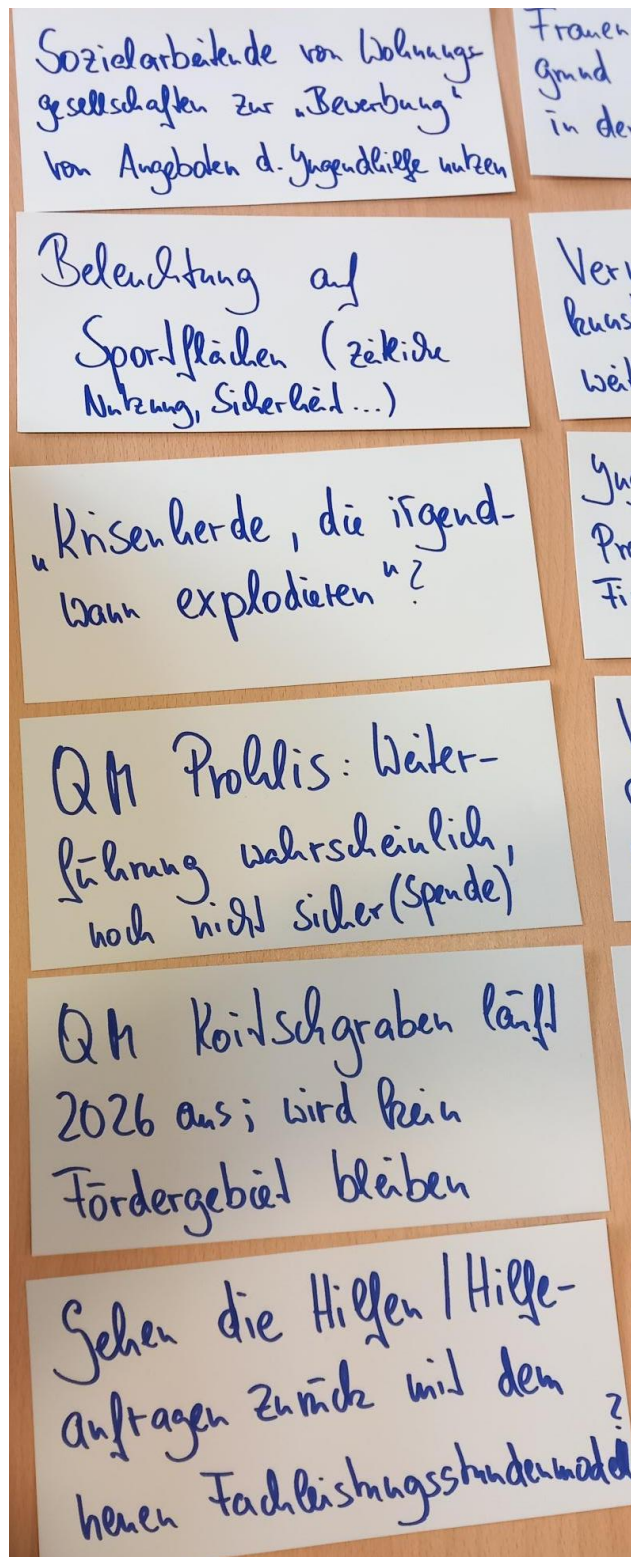 Sozialarbeitende von Wohnungs-
gesellschaften zur „Bewerbung“
von Angeboten d. Jugendhilfe nutzen
Beleuchtung auf
Sportflächen (zeitliche
Nutzung, Sicherheit...)
„Krisenherde, die irgend-
wann explodieren“?
QM Prohlis: Weiter-
führung wahrscheinlich,
noch nicht sicher (Spende)
QM Koitschgraben läuft
2026 aus; wird kein
Fördergebiet bleiben
Gehen die Hilfen / Hilfe-
anfragen zurück mit dem
neuen Fachleistungsstundenmodell?
Frauen
grund
in der
Ver
kuns
weit
Jug
Pro
Fi